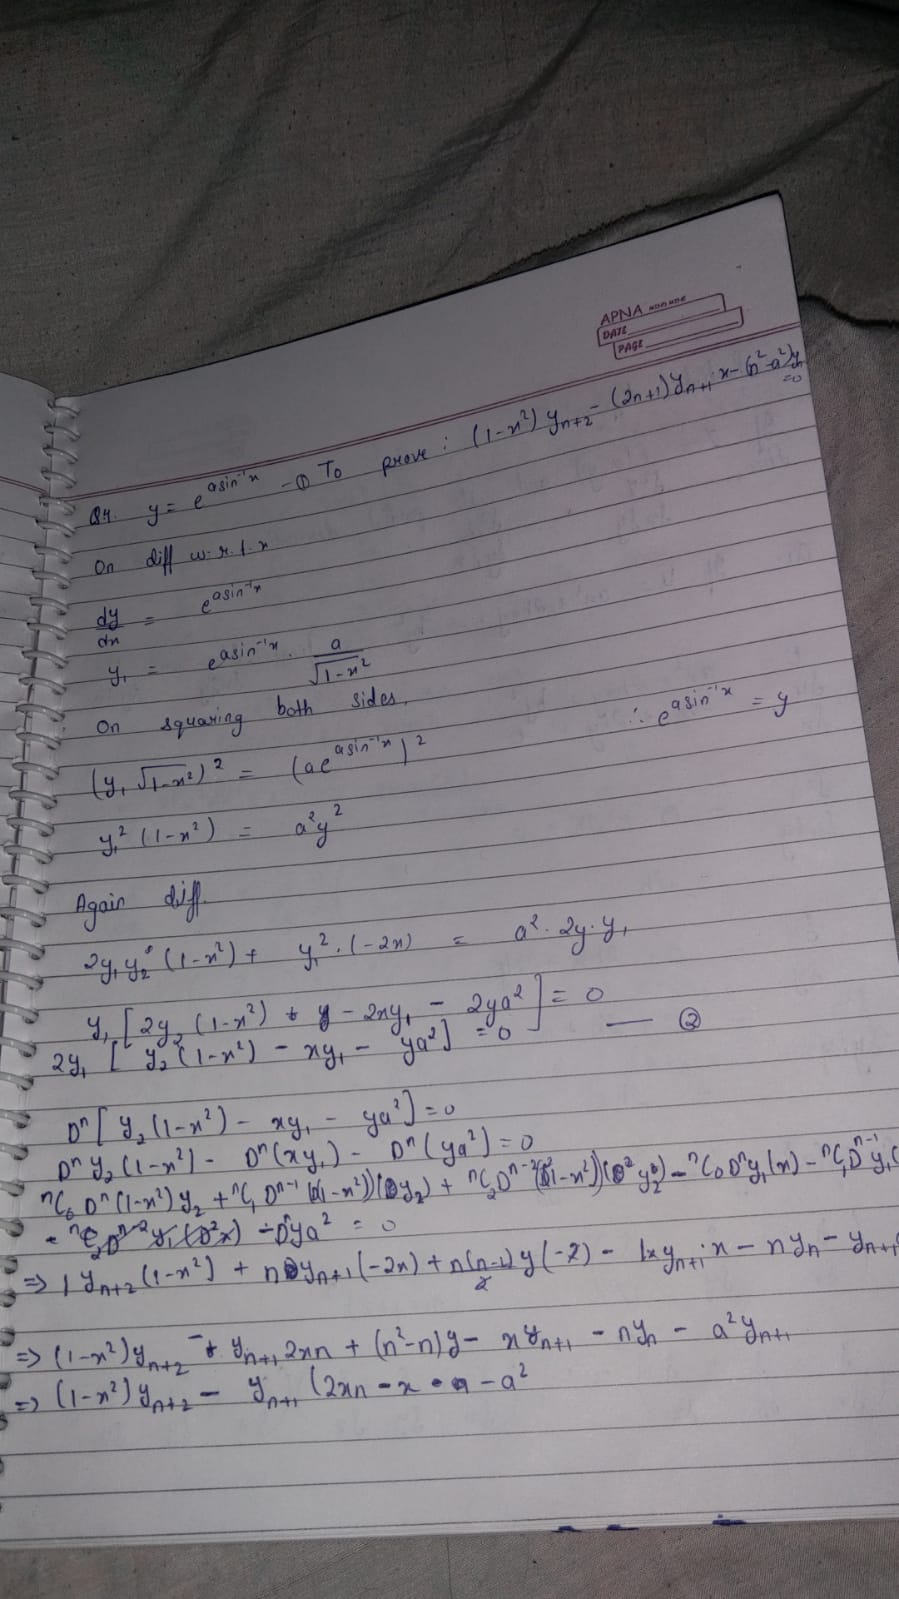 APNA
DATE
PAGE
Q4. y = e^(a sin⁻¹x) - ① To prove : (1-x²) yₙ₊₂ - (2n+1) yₙ₊₁ x - (n²-a²)yₙ = 0
On diff w.r.t. x
dy/dx = e^(a sin⁻¹x)
y₁ = e^(a sin⁻¹x) . a/√(1-x²)
On squaring both sides,
(y₁ √(1-x²))² = (ae^(a sin⁻¹x))² ∴ e^(a sin⁻¹x) = y
y₁² (1-x²) = a²y²
Again diff.
2y₁y₂ (1-x²) + y₁² . (-2x) = a² . 2y . y₁
y₁ [2y₂ (1-x²) - 2xy₁ - 2ya²] = 0
2y₁ [ y₂ (1-x²) - xy₁ - ya² ] = 0 — ②
Dⁿ [ y₂ (1-x²) - xy₁ - ya² ] = 0
Dⁿ y₂ (1-x²) - Dⁿ (xy₁) - Dⁿ (ya²) = 0
ⁿC₀ Dⁿ (1-x²) y₂ + ⁿC₁ Dⁿ⁻¹ (1-x²) (Dy₂) + ⁿC₂ Dⁿ⁻² (1-x²) (D² y₂) - ⁿC₀ Dⁿ y₁ (x) - ⁿC₁ Dⁿ⁻¹ y₁ (
- ⁿC₂ Dⁿ⁻² y₁ (D²x) - Dⁿya² = 0
=> 1 yₙ₊₂ (1-x²) + n yₙ₊₁ (-2x) + n(n-1)/2 y (-2) - 1x yₙ₊₁ . x - nyₙ - yₙ₊₁
=> (1-x²) yₙ₊₂ - yₙ₊₁ 2xn + (n²-n)y - x yₙ₊₁ - nyₙ - a² yₙ₊₁
=> (1-x²) yₙ₊₂ - yₙ₊₁ (2xn - x - a²